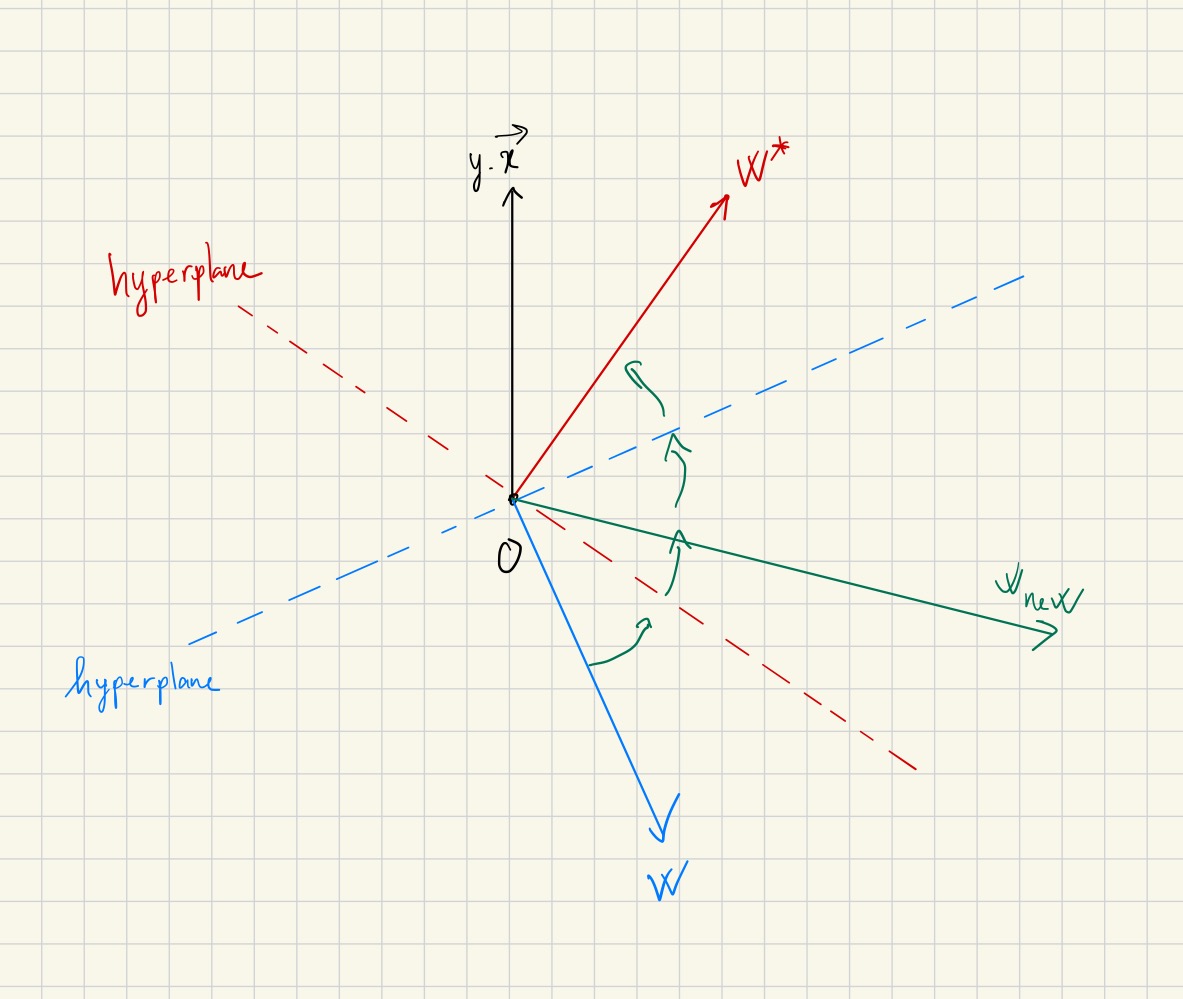 y.x⃗
W*
hyperplane
O
W new
hyperplane
W